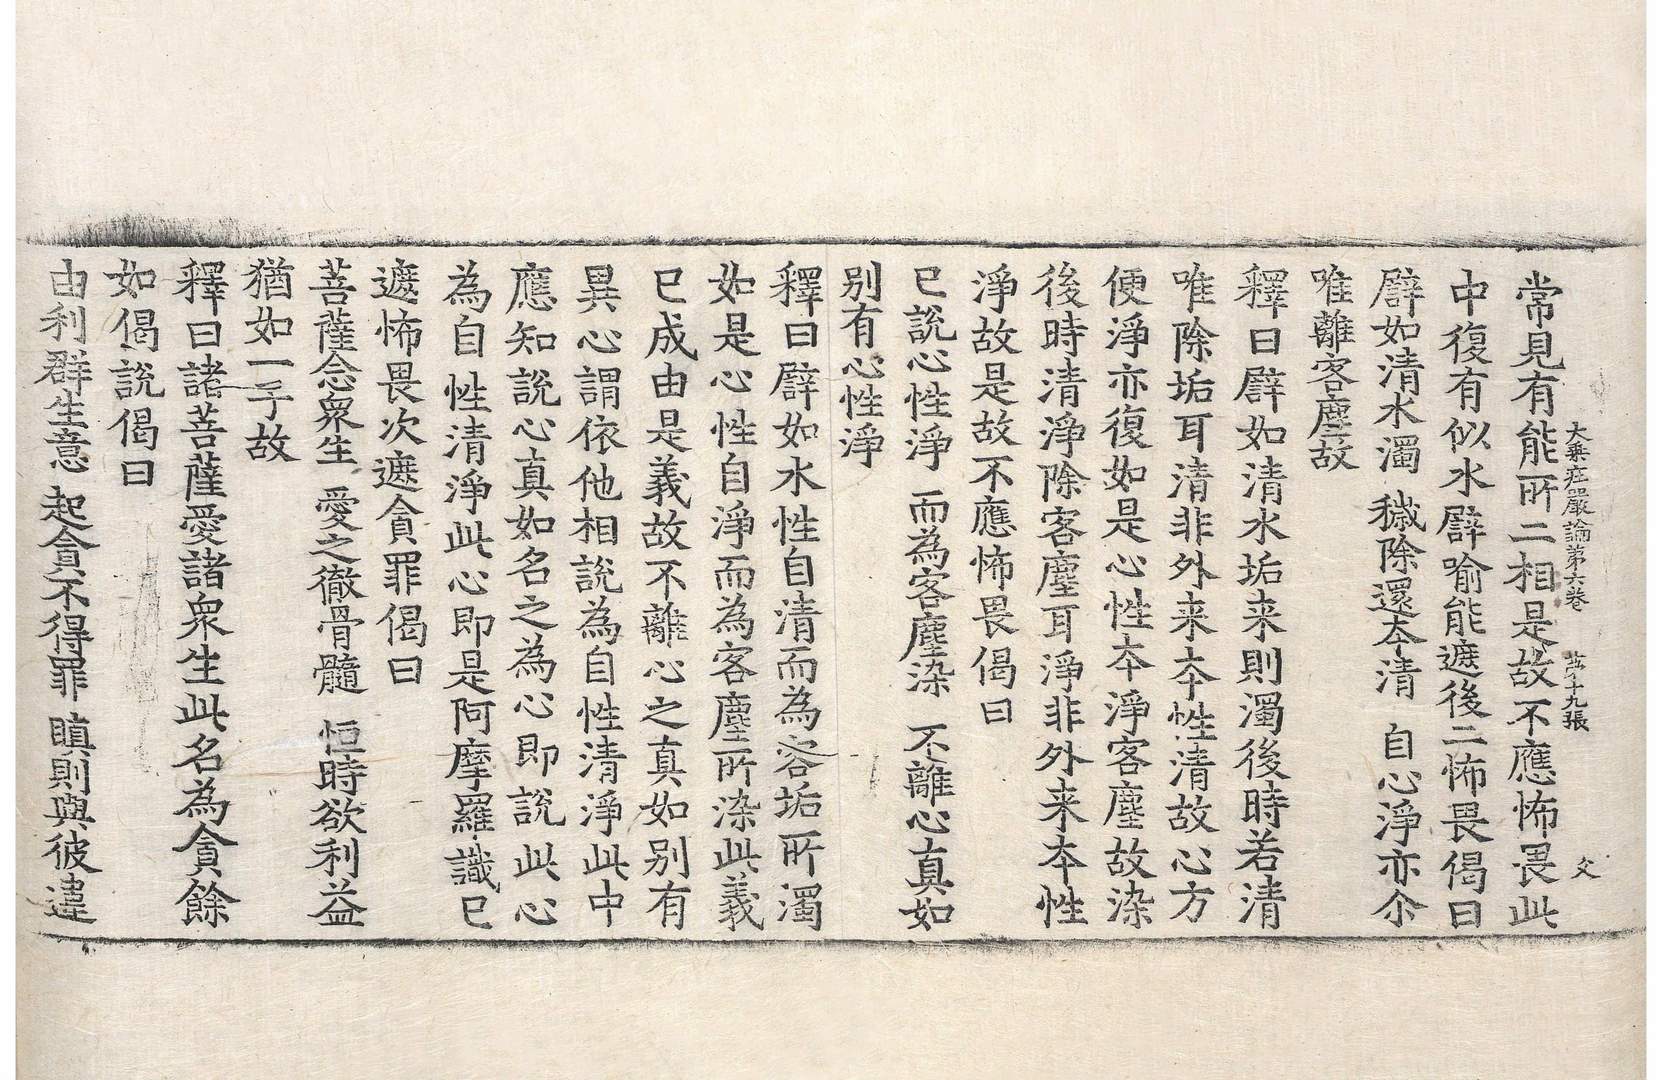 大乗庄嚴論第六卷 苐十九張 父
常見有能所二相是故不應怖畏此
中復有似水譬喻能遮後二怖畏偈曰
譬如清水濁 穢除還夲清 自心淨亦尒
唯離客塵故
釋曰譬如清水垢来則濁後時若清
唯除垢耳清非外来夲性清故心方
便淨亦復如是心性夲淨客塵故染
後時清淨除客塵耳淨非外来夲性
淨故是故不應怖畏偈曰
已說心性淨 而為客塵染 不離心真如
别有心性淨
釋曰譬如水性自清而為客垢所濁
如是心性自淨而為客塵所染此義
已成由是義故不離心之真如别有
異心謂依他相說為自性清淨此中
應知說心真如名之為心即說此心
為自性清淨此心即是阿摩羅識已
遮怖畏次遮貪罪偈曰
菩薩念衆生 愛之徹骨髓 恒時欲利益
猶如一子故
釋曰諸菩薩愛諸衆生此名為貪餘
如偈說偈曰
由利群生意 起貪不得罪 瞋則與彼違